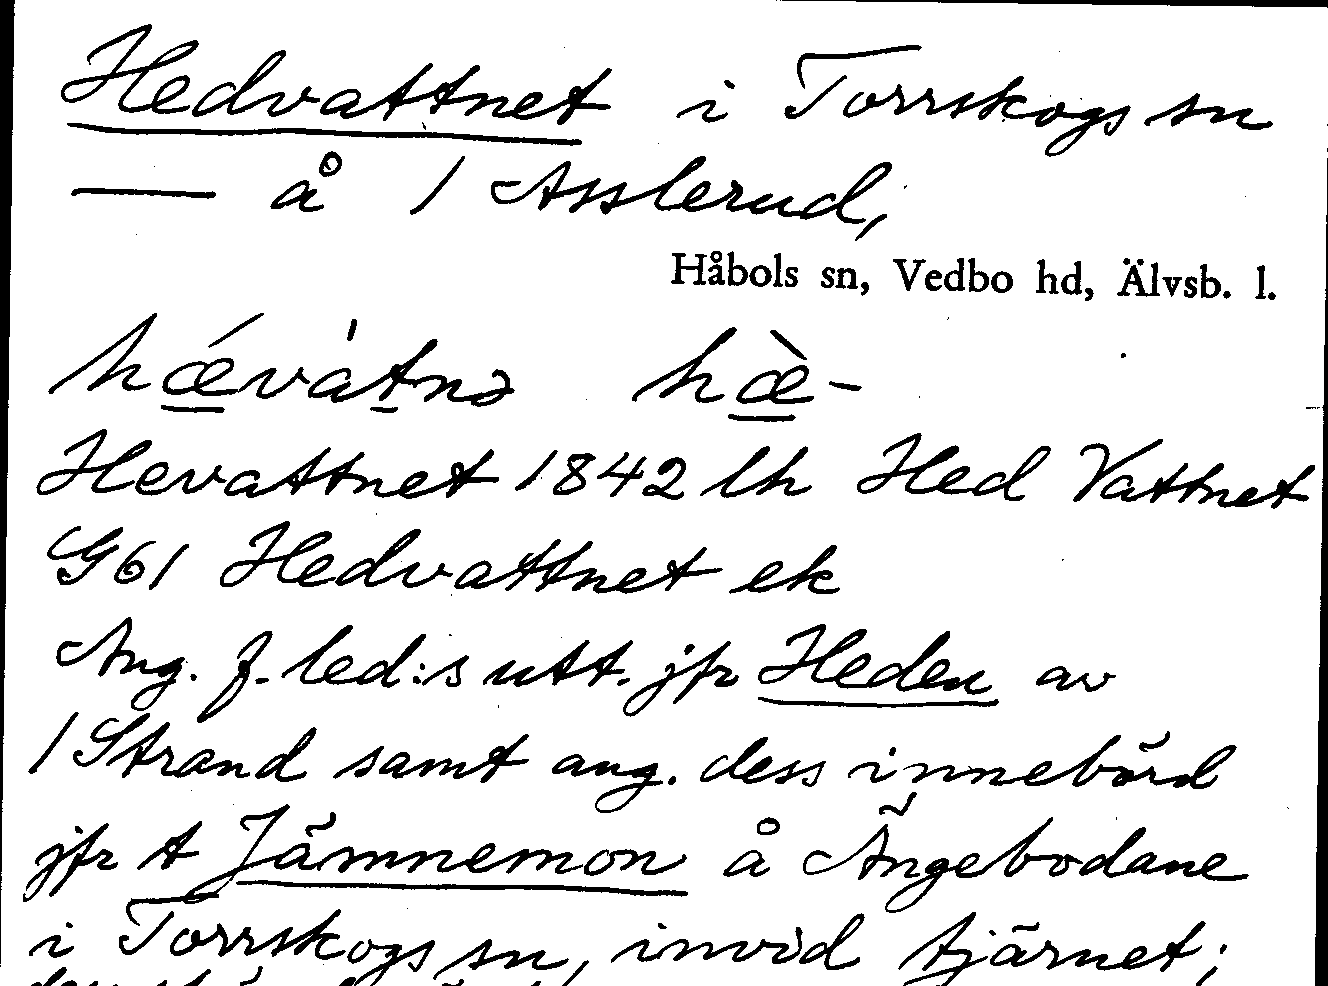 Hedvattnet i Torrskogs sn
— å 1 Asslerud,
Håbols sn, Vedbo hd, Älvsb. l.
hǽvàtnə hæ̀-
Hevattnet 1842 lh Hed Vattnet
G61 Hedvattnet ek
Ang. f. led:s utt. jfr Heden av
1 Strand samt ang. dess innebörd
jfr t Jämnemon å Ängebodane
i Torrskogs sn, invid tjärnet;